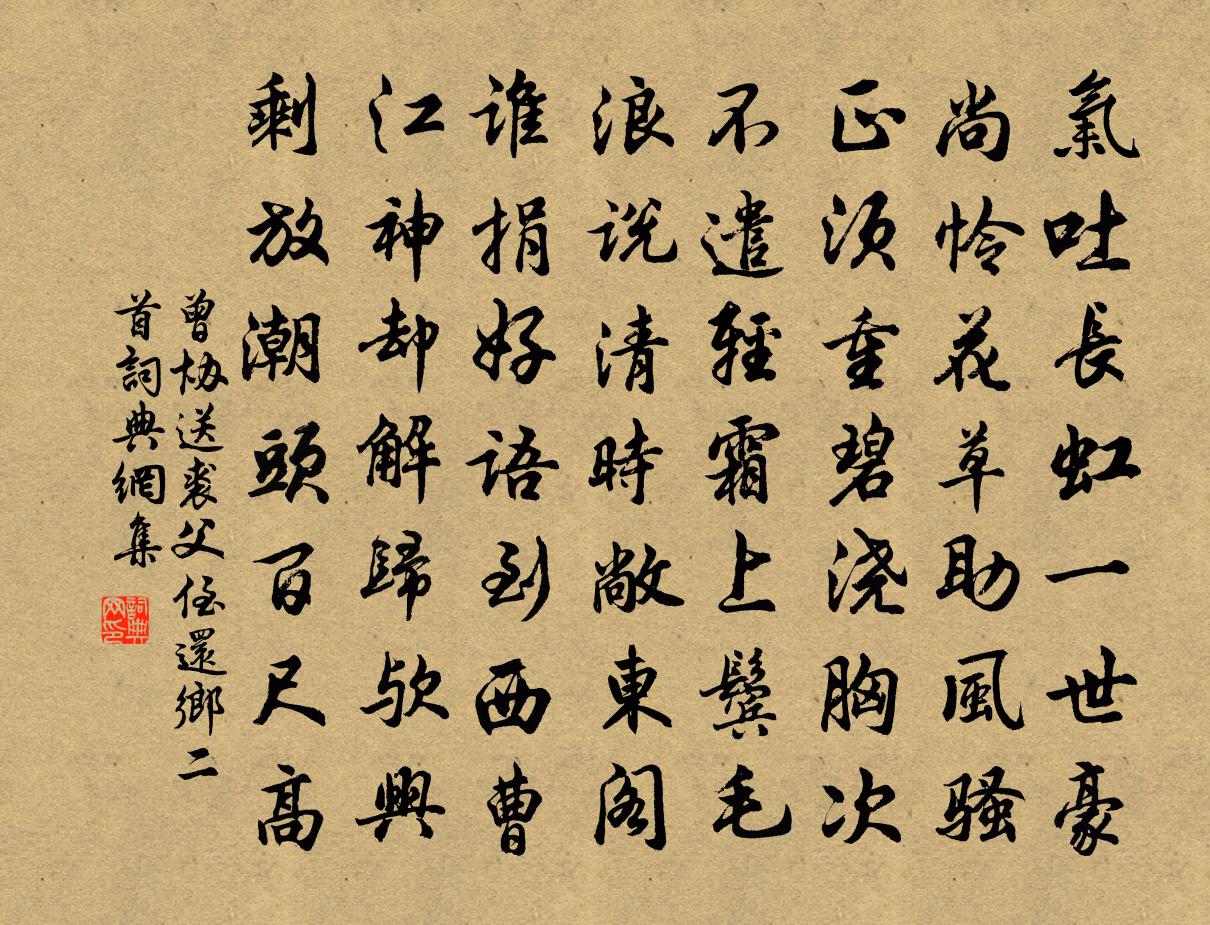 氣吐長虹一世豪
尚怜花草助風騷
正須重碧澆胸次
不遣輕霜上鬓毛
浪说清時敞東閣
谁捐好語到西曹
江神却解歸欤興
剩放潮頭百尺高
曾协送裘父侄還鄉二
首詞典網集
詞典
网印